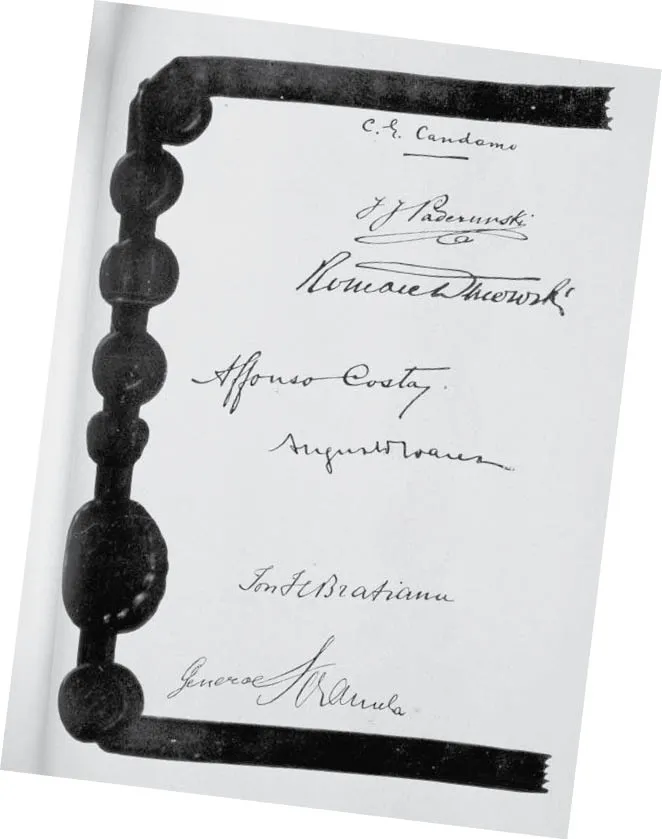 C. G. Candamo
I J Paderewski
Roman Dmowski
Affonso Costa
Augusto Soares
Ion I C Bratianu
General Coanda